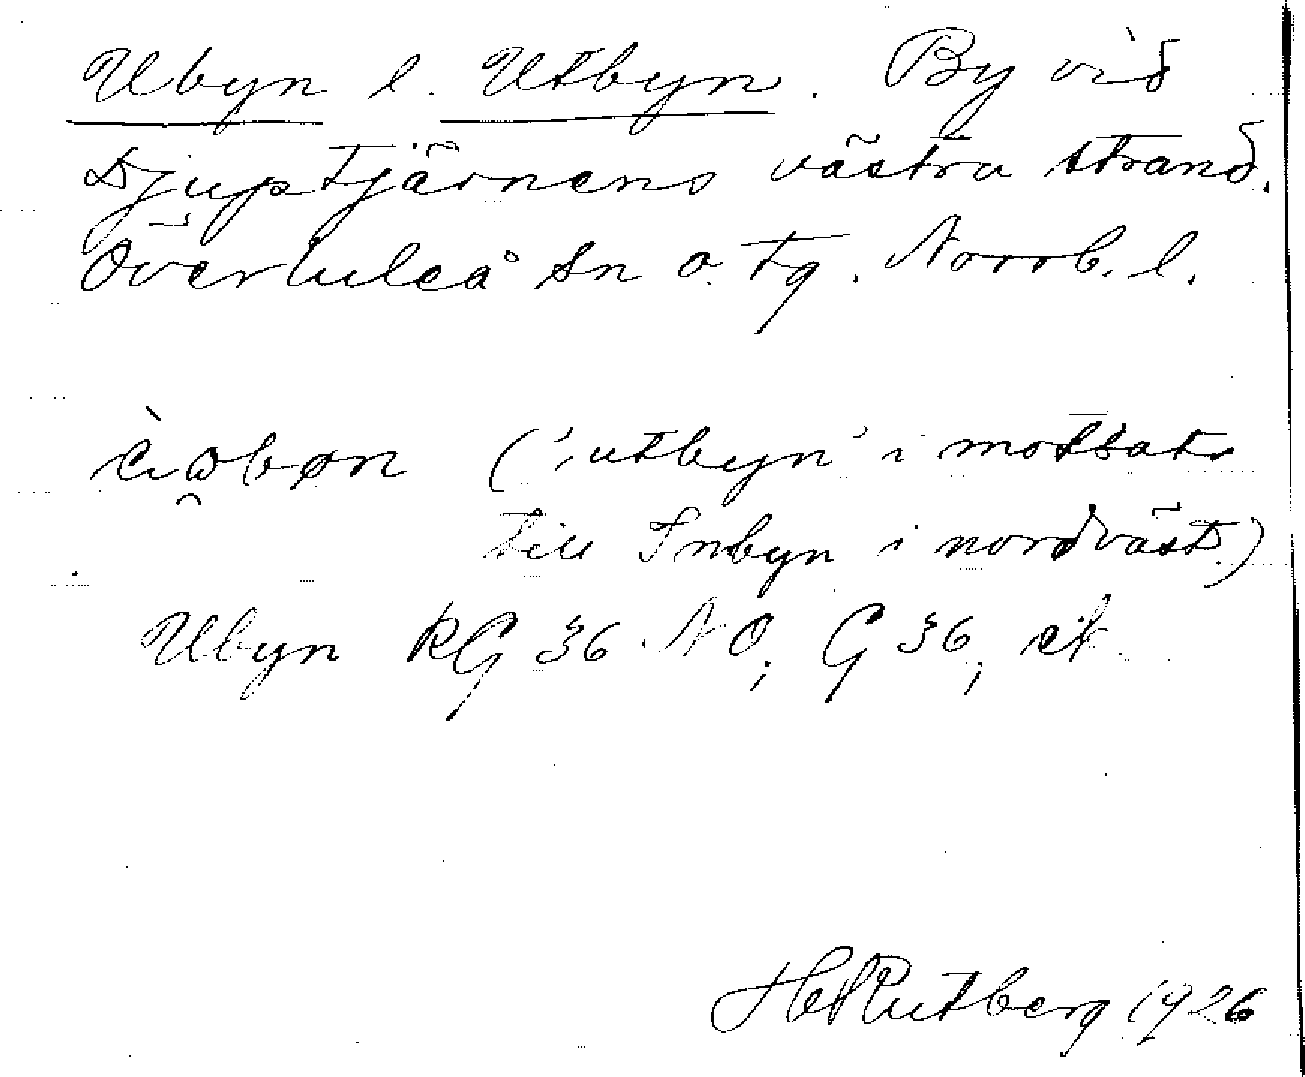 Ubyn l. Utbyn. By vid
Djuptjärnens västra strand.
Överluleå sn o. tg. Norrb. l.
('utbyn' i motsats
till Inbyn i nordväst.)
Ubyn RG 36 NO; G 36, ek
Hd Rutberg 1926